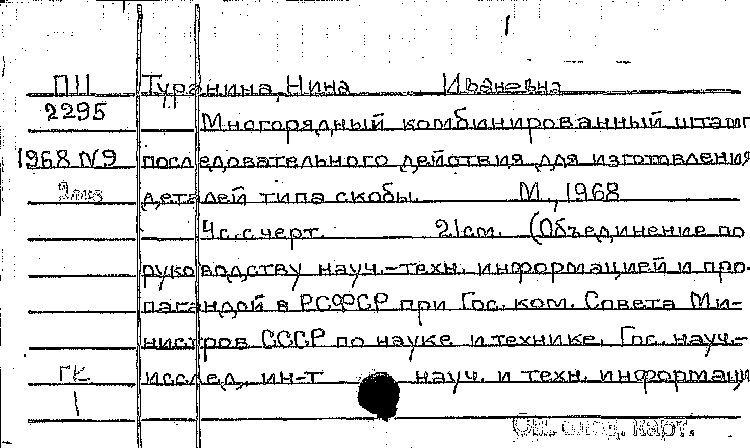 ПII Туранина, Нина Ивановна
2295 Многорядный комбинированный штамп
1968 N9 последовательного действия для изготовления
деталей типа скобы. М., 1968
4 с. с черт. 21 см. (Объединение по
руководству науч.-техн. информацией и про-
пагандой в РСФСР при Гос. ком. Совета Ми-
нистров СССР по науке и технике. Гос. науч.-
ГК исслед. ин-т науч. и техн. информаци
1
карт.